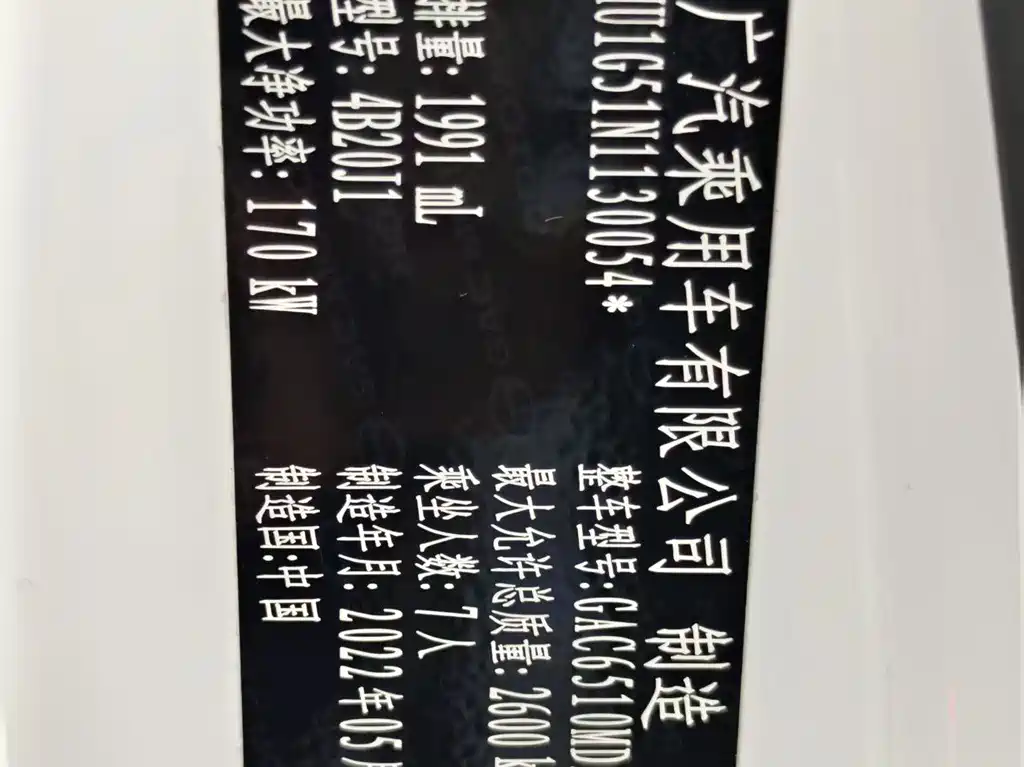 广汽乘用车有限公司 制造
U1G51N1130054*
整车型号:GAC6510MD
最大允许总质量: 2600 k
排量: 1991 mL
乘坐人数: 7人
型号: 4B20J1
制造年月: 2022年05月
最大净功率: 170 kW
制造国:中国